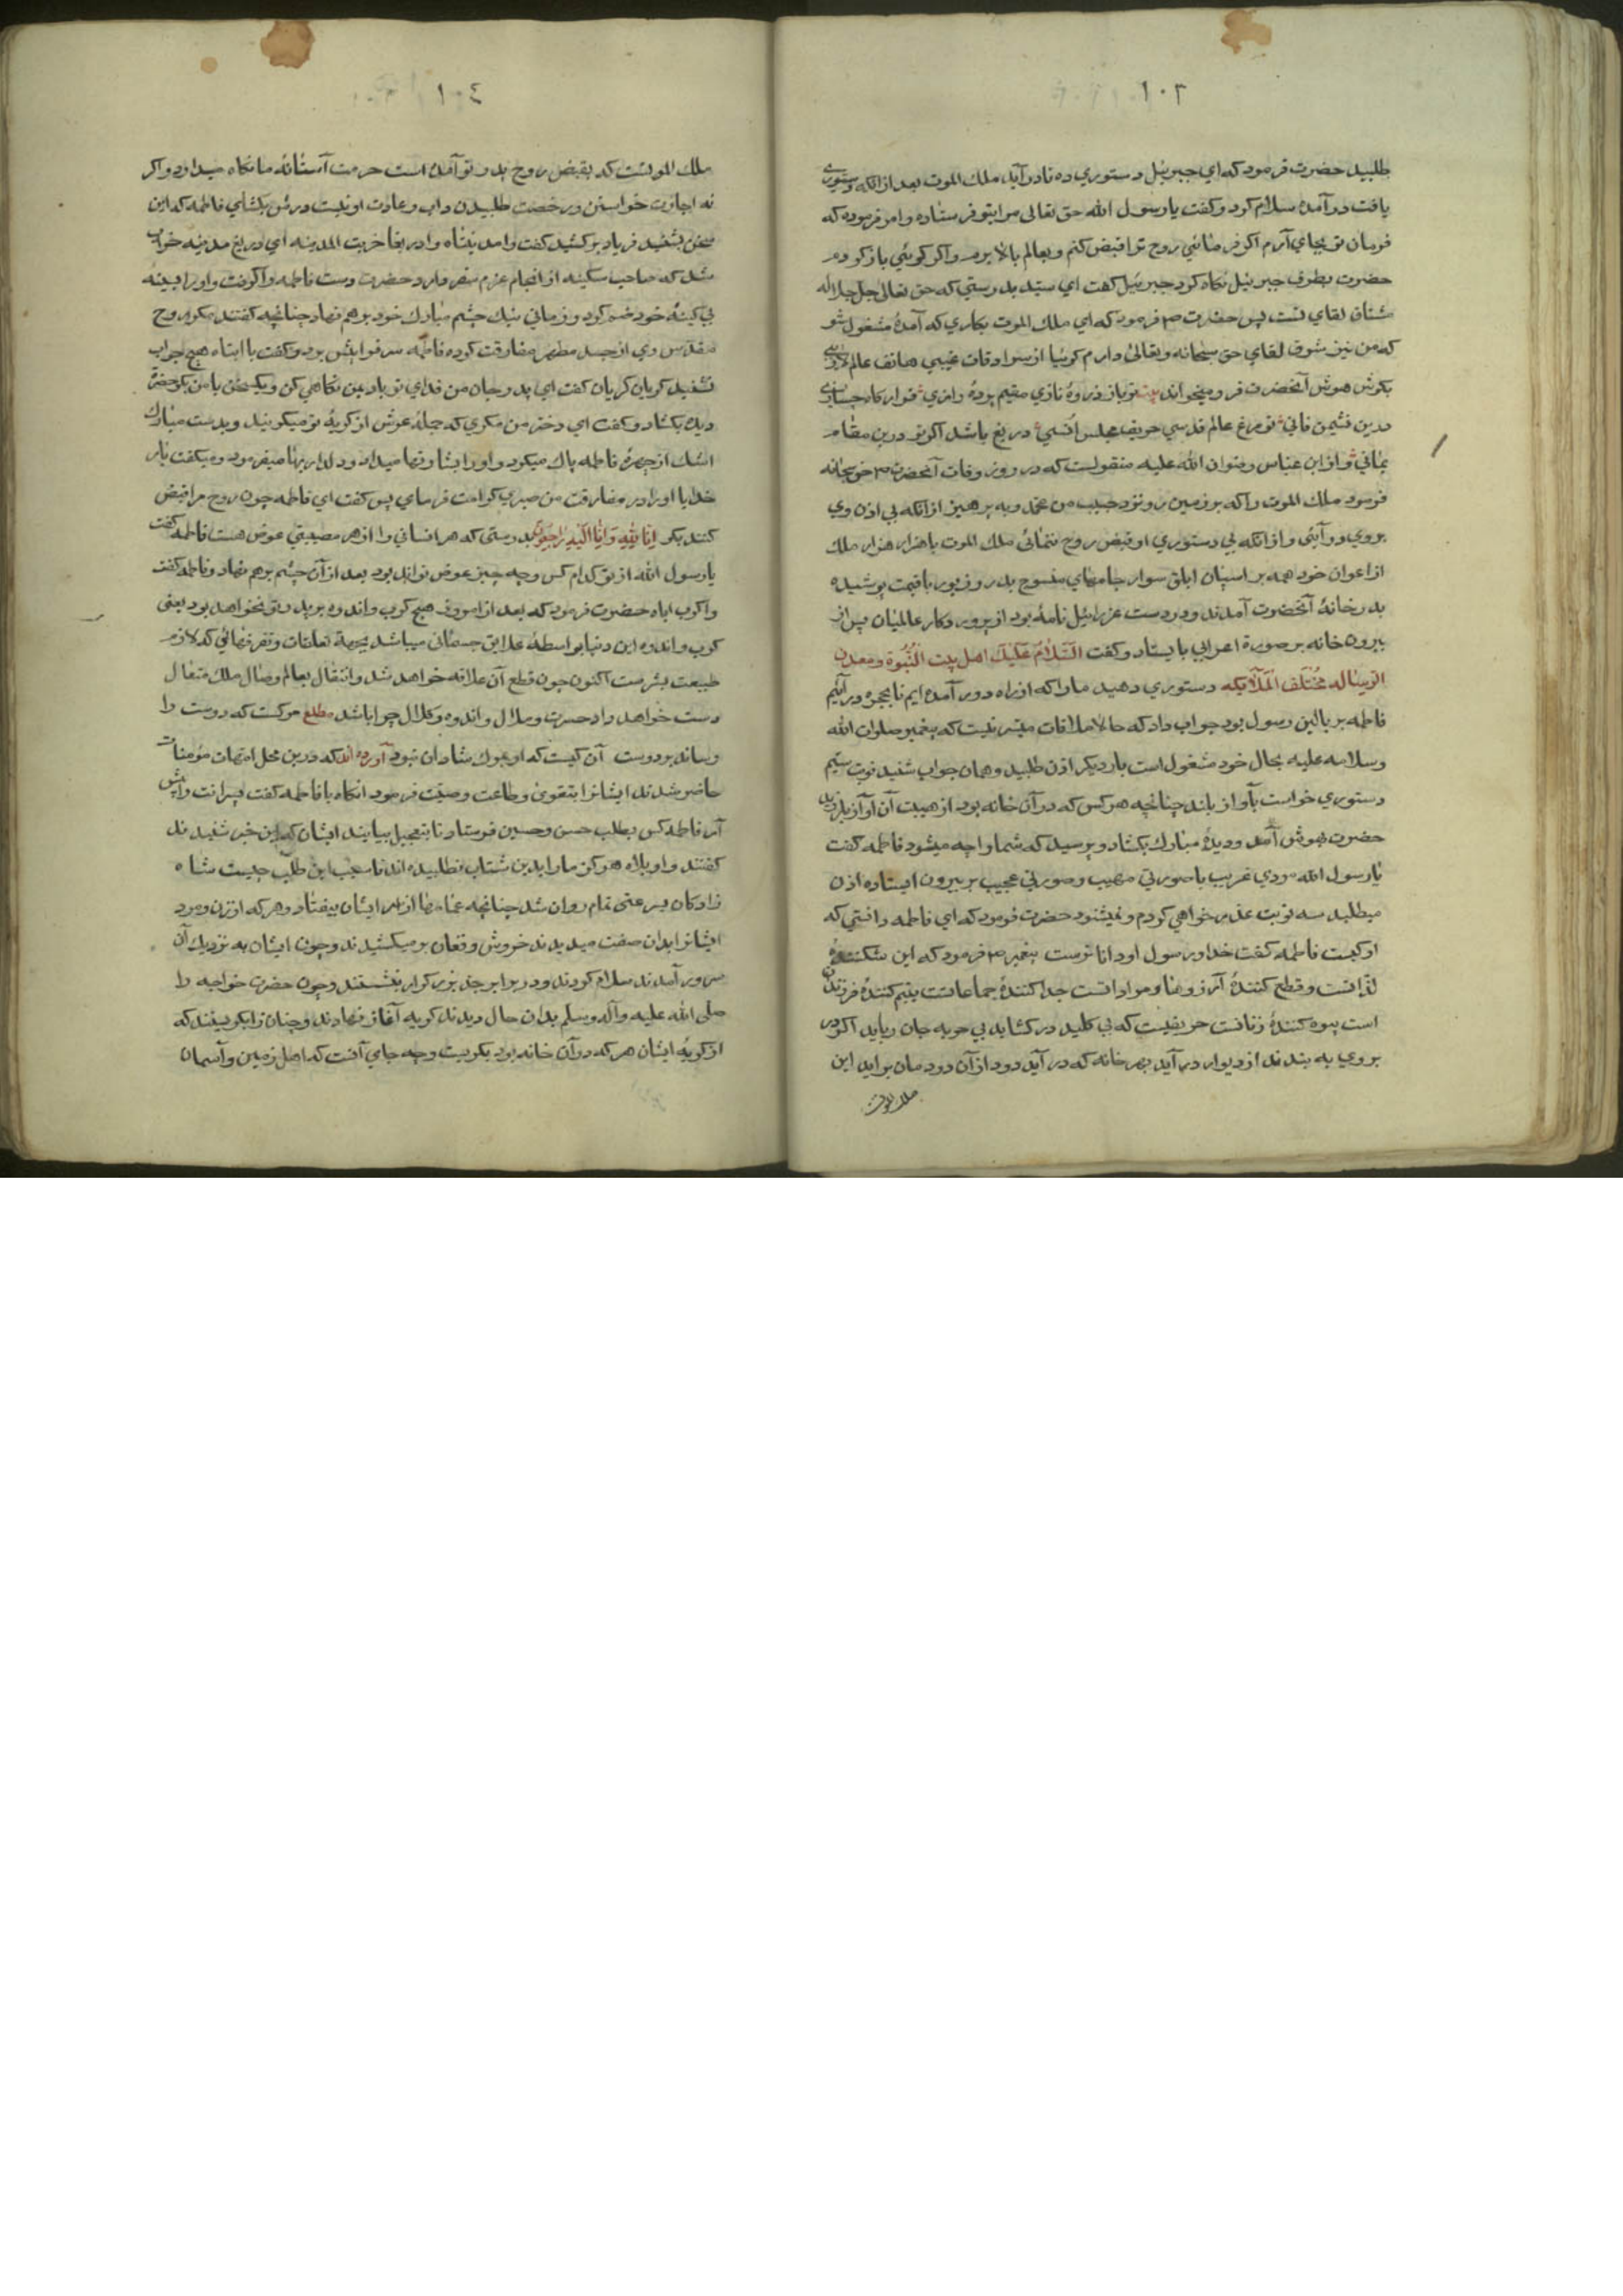 ١٠٣
طلبید حضرت فرمود که ای جبرئیل دستوری ده تا درآید ملك الموت بعد از انکه دستوری
یافت درآمد سلام کرد و کفت یا رسول الله حق تعالی مرا بتو فرستاده و امر فرموده که
فرمان تو بجای آرم اکر فرمائی روح ترا قبض کنم و بعالم بالا برم و اکر کوئی باز کردم
حضرت بطرف جبرئیل نکاه کرد جبرئیل کفت ای سید بدرستی که حق تعالی جل جلاله
مشتاق لقای تست پس حضرت ص فرمود که ای ملك الموت بکاری که آمدۀ مشغول شو
که من نیز شوق لقای حق سبحانه و تعالی دارم کوئیا از سرادقات غیبی هاتف عالم لاریبی
بکوش هوش آنحضرت فرو میخواند بیت تو باز ذروۀ نازی مقیم پردۀ رازی قرارکاه چه سازی
درین نشیمن فانی تو مرغ عالم قدسی حریف مجلس انسی دریغ باشد اکر تو درین مقام
بمانی و از ابن عباس رضوان الله علیه منقولست که در روز وفات آنحضرت ص حق سبحانه
فرمود ملك الموت را که بر زمین رو نزد حبیب من محمد و به پرهیز از انکه بی اذن وی
بروی درآئی و از انکه بی دستوری او قبض روح نمائی ملك الموت با هزار هزار ملك
از اعوان خود همه بر اسپان ابلق سوار جامهای منسوج بدر و زیور باقیمت پوشیده
بدر خانۀ آنحضرت آمدند و در دست عزرائیل نامۀ بود از پرورد کار عالمیان پس از
بیرون خانه بر صورة اعرابی بایستاد و کفت السَّلامُ عَلَیكَ اهل بیت النُّبُوة و معدن
الرساله مُختَلَف المَلآئکه دستوری دهید مارا که از راه دور آمده ایم تا بحجره درآئیم
فاطمه بر بالین رسول بود جواب داد که حالا ملاقات میسر نیست که پیغمبر صلوات الله
وسلامه علیه بحال خود مشغول است بار دیکر اذن طلبید و همان جواب شنید نوبت سیم
دستوری خواست بآواز بلند چنانچه هر کس که در آن خانه بود از هیبت آن آواز بلرزید
حضرت بهوش آمد و دیدۀ مبارك بکشاد و پرسید که شما را چه میشود فاطمه کفت
یا رسول الله مردی غریب با صورتی مهیب و صورتی عجیب بر بیرون ایستاده اذن
میطلبد سه نوبت عذر خواهی کردم و نمیشنود حضرت فرمود که ای فاطمه دانستی که
او کیست فاطمه کفت خدا و رسول او دانا ترست پیغمبر ص فرمود که این شکنندۀ
لذّاتست و قطع کنندۀ آرزوها و مراداتست جدا کنندۀ جماعاتست یتیم کنندۀ فرزندان
است بیوه کنندۀ زنانست حریفیست که بی کلید در کشاید بی حربه جان رباید اکر در
بروی به بندند از دیوار درآید بهر خانه که درآید دود از آن دودمان براید این
ملك الموت
١٠٤
ملك الموتست که بقبض روح پدر تو آمده است حرمت آستانۀ ما نکاه میدارد و اکر
نه اجازت خواستن و رخصت طلبیدن داب و عادت او نیست در بکشای فاطمه که این
سخن بشنید فریاد برکشید کفت وامدینتاه وا دریغا خربت المدینه ای دریغ مدینه خراب
شد که صاحب سکینه از انجام عزم سفر دارد حضرت دست فاطمه را کرفت و اورا بسینه
بی کینۀ خود ضم کرد و زمانی نیك چشم مبارك خود برهم نهاد چنانچه کفتند مکر روح
مقدس وی از جسد مطهر مفارقت کرده فاطمه سر فرا پیش برد و کفت یا ابتاه هیچ جواب
نشنید کریان کریان کفت ای پدر جان من فدای تو باد بمن نکاهی کن و یکسخن با من بکو حضرت
دیده بکشاد و کفت ای دختر من مکری که حملۀ عرش از کریۀ تو میکریند و بدست مبارك
اشك از چهرۀ فاطمه پاك میکرد و اورا بشارتها میداد و دلداریها میفرمود و میکفت بار
خدایا اورا در مفارقت من صبری کرامت فرمای پس کفت ای فاطمه چون روح مرا قبض
کنند بکو اِنّا لِلّهِ وَاِنّا اِلَیْهِ رَاجِعُونَ بدرستی که هر انسانی را از هر مصیبتی عوض هست فاطمه کفت
یا رسول الله از تو کدام کس و چه چیز عوض تواند بود بعد از آن چشم برهم نهاد و فاطمه کفت
واکرب اباه حضرت فرمود که بعد از امروز هیچ کرب و اندوه بر پدر تو نخواهد بود یعنی
کرب و اندوه این دنیا بواسطۀ علایق جسمانی میباشد بجهة تعلقات و تفرقهائی که لازم
طبیعت بشریست اکنون چون قطع آن علاقه خواهد شد و انتقال بعالم وصال ملك متعال
دست خواهد داد حسرت و ملال و اندوه و کلال چرا باشد مطلع مرکست که دوست را
رساند بر دوست آن کیست که او بمرك شادان نبود آورده اند که درین محل امهات مؤمنات
حاضر شدند ایشانرا بتقوی و طاعت وصیّت فرمود انکاه با فاطمه کفت پسرانت را پیش
آر فاطمه کس بطلب حسن و حسین فرستاد تا بتعجیل بیایند ایشان که این خبر شنیدند
کفتند واویلاه هرکز مارا بدین شتاب نطلبیده اند تا سبب این طلب چیست شاه
زادکان بسرعتی تمام روان شد چنانچه عمامها از سر ایشان بیفتاد و هر که از زن و مرد
ایشانرا بدان صفت میدیدند خروش و فغان برمیکشیدند و چون ایشان به نزدیك آن
سرور آمدند سلام کردند و در برابر جد بزرکوار بنشستند و چون حضرت خواجه را
صلی الله علیه و آله وسلم بدان حال دیدند کریه آغاز نهادند و چنان زار بکریستند که
از کریۀ ایشان هر که در آن خانه بود بکریست و چه جای آنست که اهل زمین و آسمان